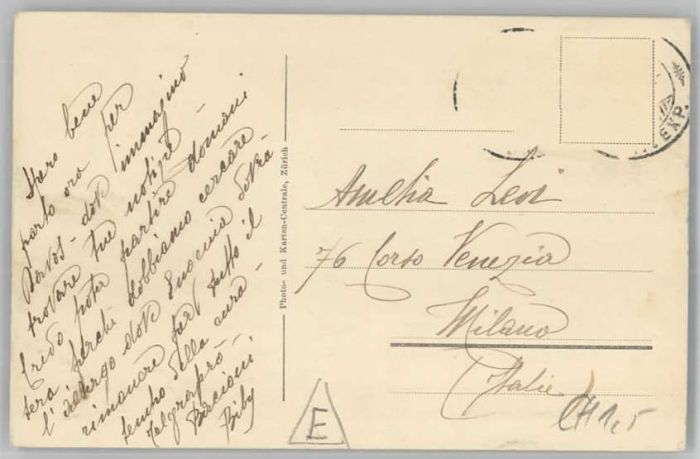 Sono bene
parto ora per
Davos - dove immagino
trovare tue notizie -
Credo potrà partire domani
sera perchè dobbiamo cercare
l'albergo dove Enochina dovrà
rimanere per tutto il
tempo della cura -
Telegraferò -
Bacioni
Biby
Photo- und Karten-Centrale, Zürich
EXP.
Amelia Levi
76 Corso Venezia
Milano
Italie
E
CH 1,5